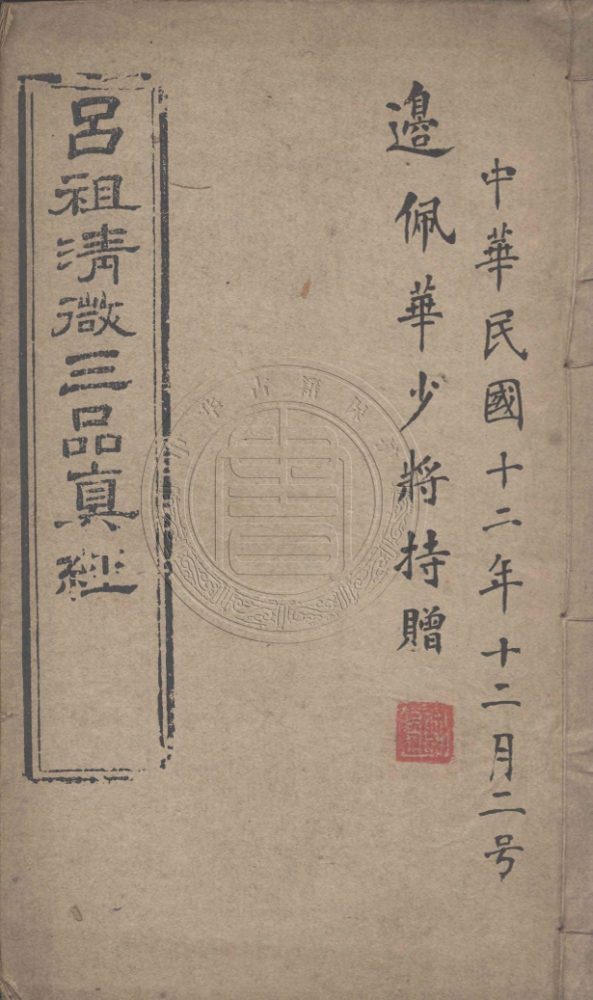 中華民國十二年十二月二号
邊佩華少將持贈
呂祖清微三品真經